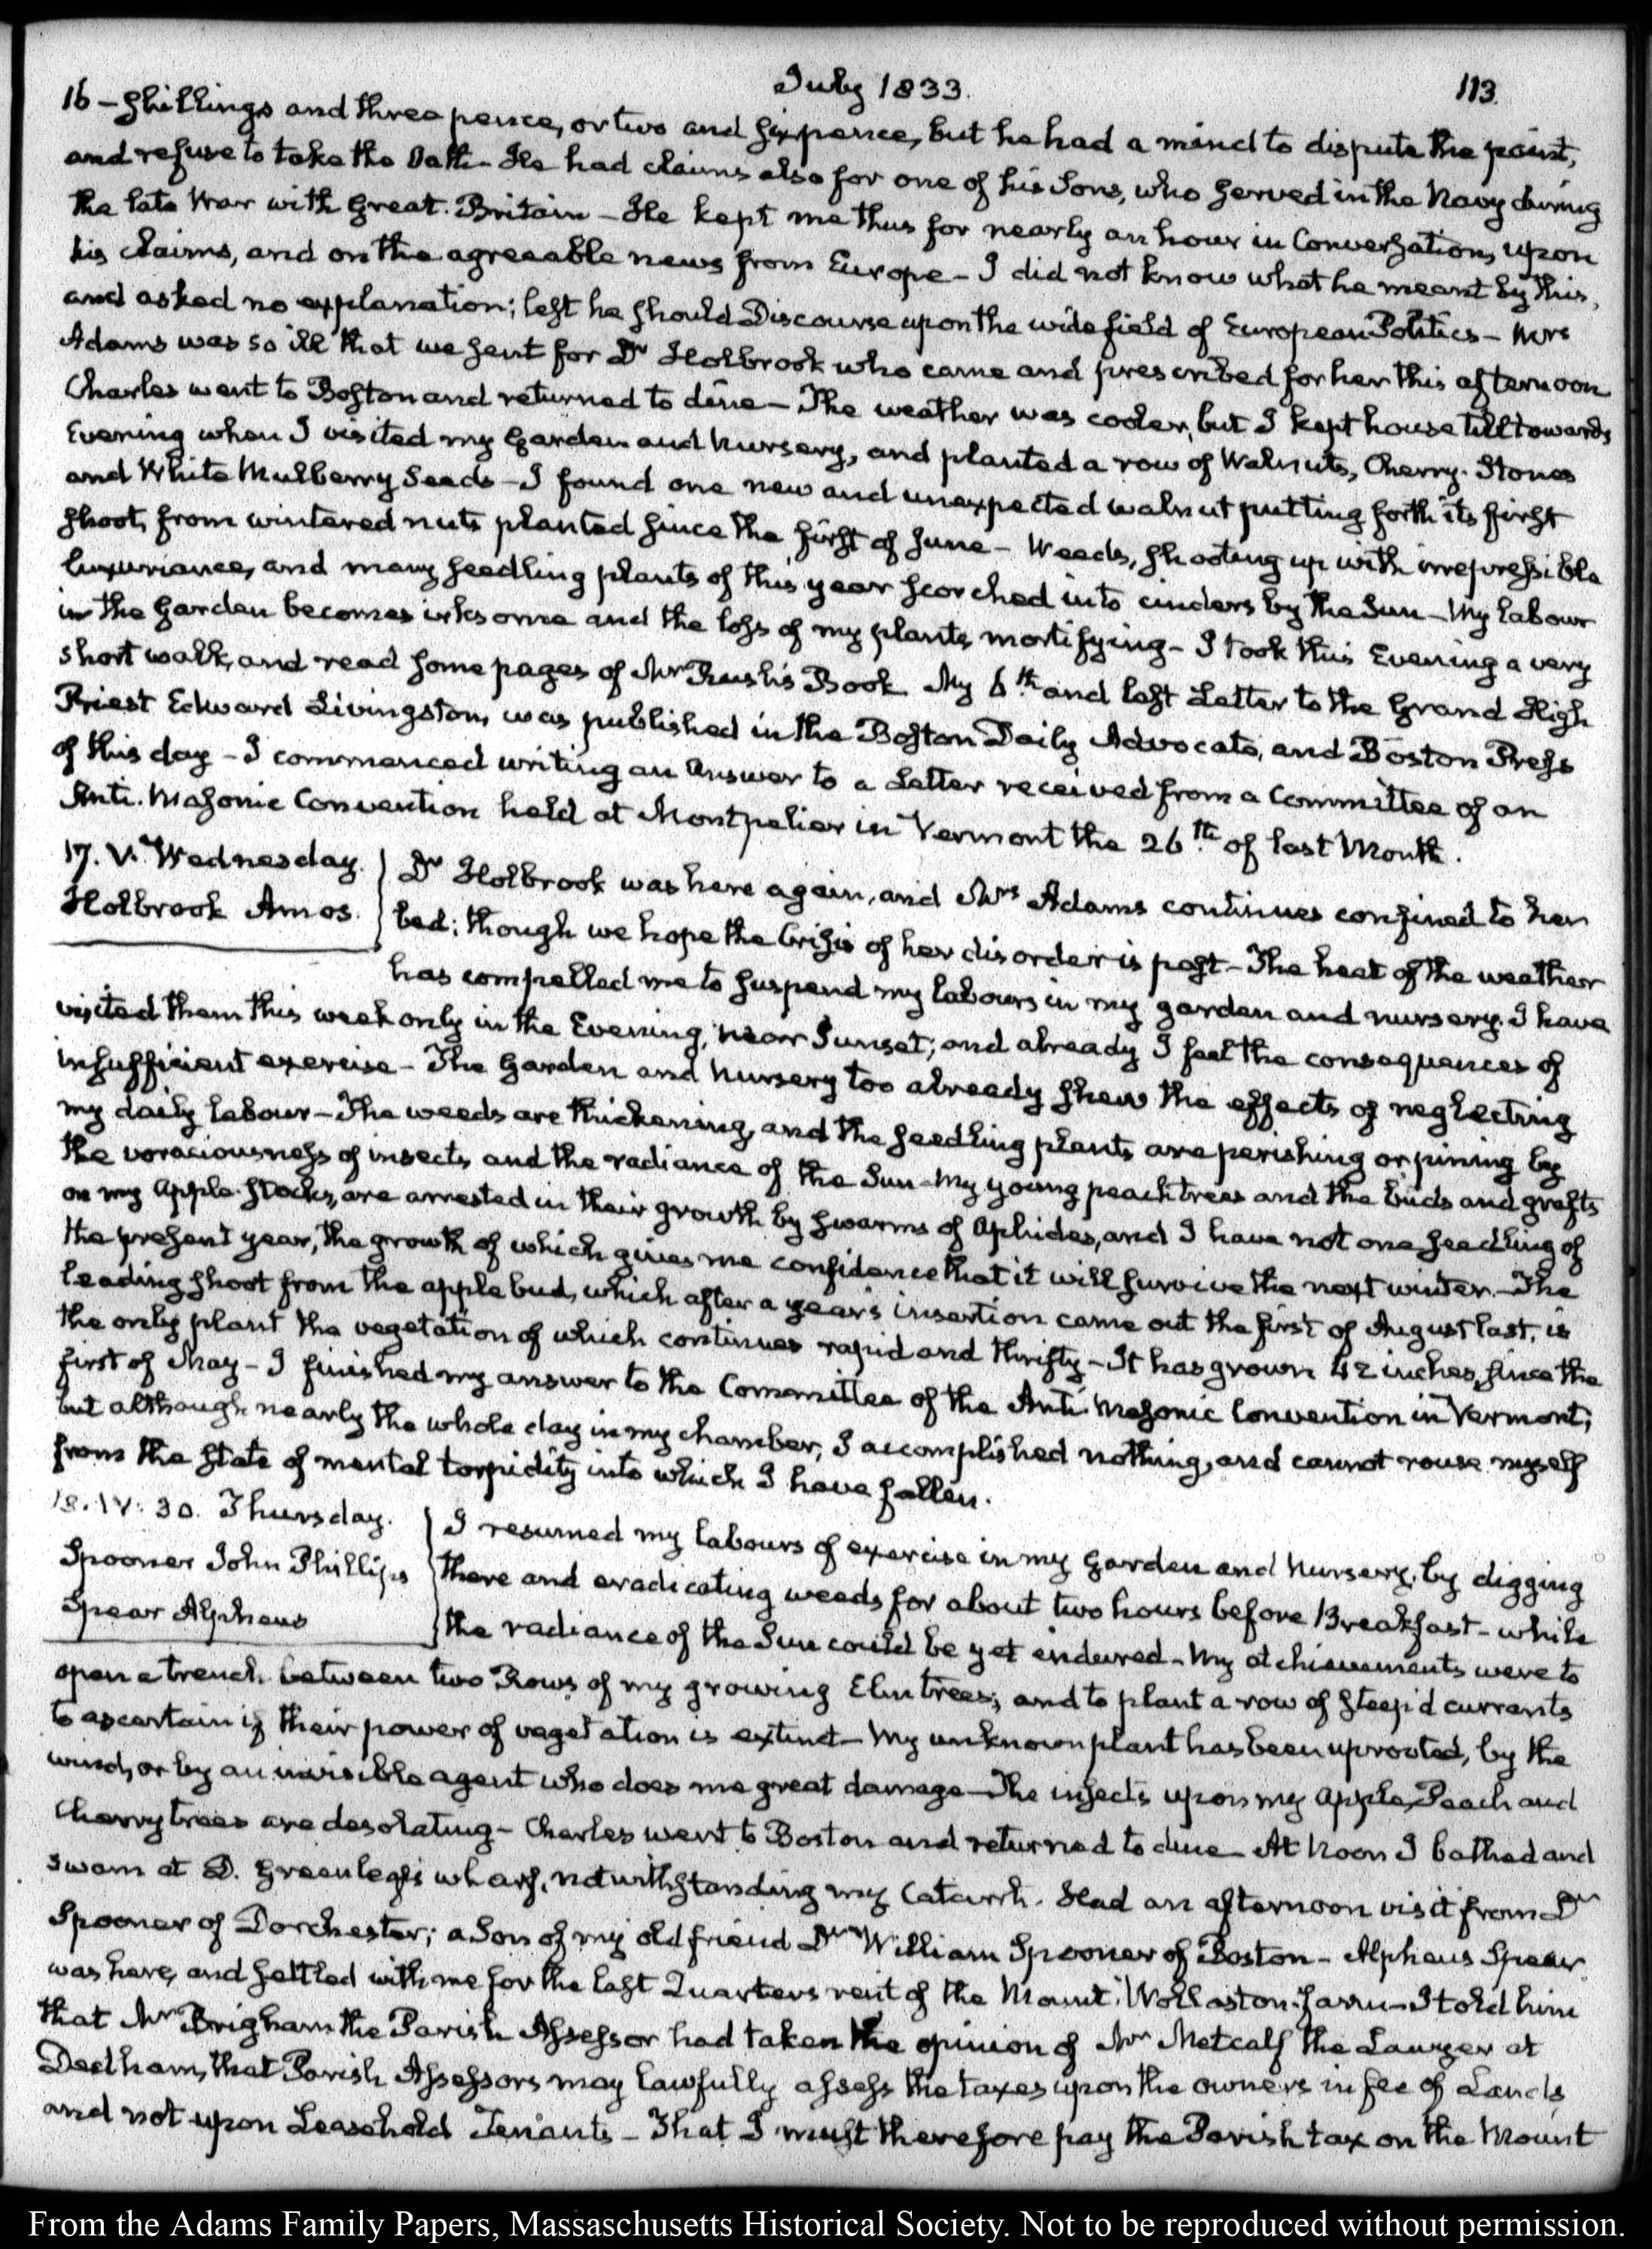 July 1833.
113.
16 – shillings and three pence, or two and sixpence, but he had a mind to dispute the point,
and refuse to take the Oath – He had claims also for one of his Sons, who served in the Navy during
the late War with Great-Britain – He kept me thus for nearly an hour in Conversation, upon
his claims, and on the agreeable news from Europe – I did not know what he meant by this,
and asked no explanation; lest he should Discourse upon the wide field of European Politics – Mrs
Adams was so ill that we sent for Dr Holbrook who came and prescribed for her this afternoon
Charles went to Boston and returned to dine – The weather was cooler, but I kept house till towards
Evening when I visited my Garden and Nursery, and planted a row of Walnuts, Cherry-Stones
and White Mulberry Seeds – I found one new and unexpected walnut putting forth its first
shoot, from wintered nuts planted since the first of June – Weeds, shooting up with irrepressible
luxuriance, and many seedling plants of this year scorched into cinders by the Sun – My labour
in the Garden becomes irksome and the loss of my plants mortifying – I took this Evening a very
short walk, and read some pages of Mr Rush's Book My 6th and last Letter to the Grand High
Priest Edward Livingston, was published in the Boston Daily Advocate, and Boston Press
of this day – I commenced writing an Answer to a Letter received from a Committee of an
Anti-Masonic Convention held at Montpelier in Vermont the 26th of last Month.
17. V. Wednesday.
Holbrook Amos.
Dr Holbrook was here again, and Mrs Adams continues confined to her
bed; though we hope the Crisis of her disorder is past – The heat of the weather
has compelled me to suspend my labours in my garden and nursery. I have
visited them this week only in the Evening, near Sunset; and already I feel the consequences of
insufficient exercise – The Garden and Nursery too already shew the effects of neglecting
my daily labour – The weeds are thickening, and the seedling plants are perishing or pining by
the voraciousness of insects and the radiance of the Sun – My young peach trees and the buds and grafts
on my Apple-stocks, are arrested in their growth by swarms of Aphides, and I have not one seedling of
the present year, the growth of which gives me confidence that it will survive the next winter. – The
leading shoot from the apple bud, which after a year's insertion came out the first of August last, is
the only plant the vegetation of which continues rapid and thrifty – It has grown 42 inches, since the
first of May – I finished my answer to the Committee of the Anti-Masonic Convention in Vermont;
but although nearly the whole day in my chamber, I accomplished nothing, and cannot rouse myself
from the state of mental torpidity into which I have fallen.
18. IV: 30. Thursday.
Spooner John Phillips
Spear Alpheus
I resumed my labours of exercise in my Garden and Nursery, by digging
there and eradicating weeds for about two hours before Breakfast – while
the radiance of the Sun could be yet endured – My atchievements were to
open a trench between two Rows of my growing Elm trees; and to plant a row of steep'd currants
to ascertain if their power of vegetation is extinct – My unknown plant has been uprooted, by the
wind, or by an invisible agent who does me great damage – The insects upon my Apple, Peach and
Cherry trees are desolating – Charles went to Boston and returned to dine – At Noon I bathed and
swam at D. Greenleaf's wharf, notwithstanding my Catarrh. Had an afternoon visit from Dr
Spooner of Dorchester; a Son of my old friend Dr William Spooner of Boston – Alpheus Spear
was here, and settled with me for the last Quarters rent of the Mount-Wollaston-farm – I told him
that Mr Brigham the Parish Assessor had taken the opinion of Mr Metcalf the Lawyer at
Dedham, that Parish Assessors may lawfully assess the taxes upon the owners in fee of Lands
and not upon Leasehold Tenants – That I must therefore pay the Parish tax on the Mount
From the Adams Family Papers, Massaschusetts Historical Society. Not to be reproduced without permission.